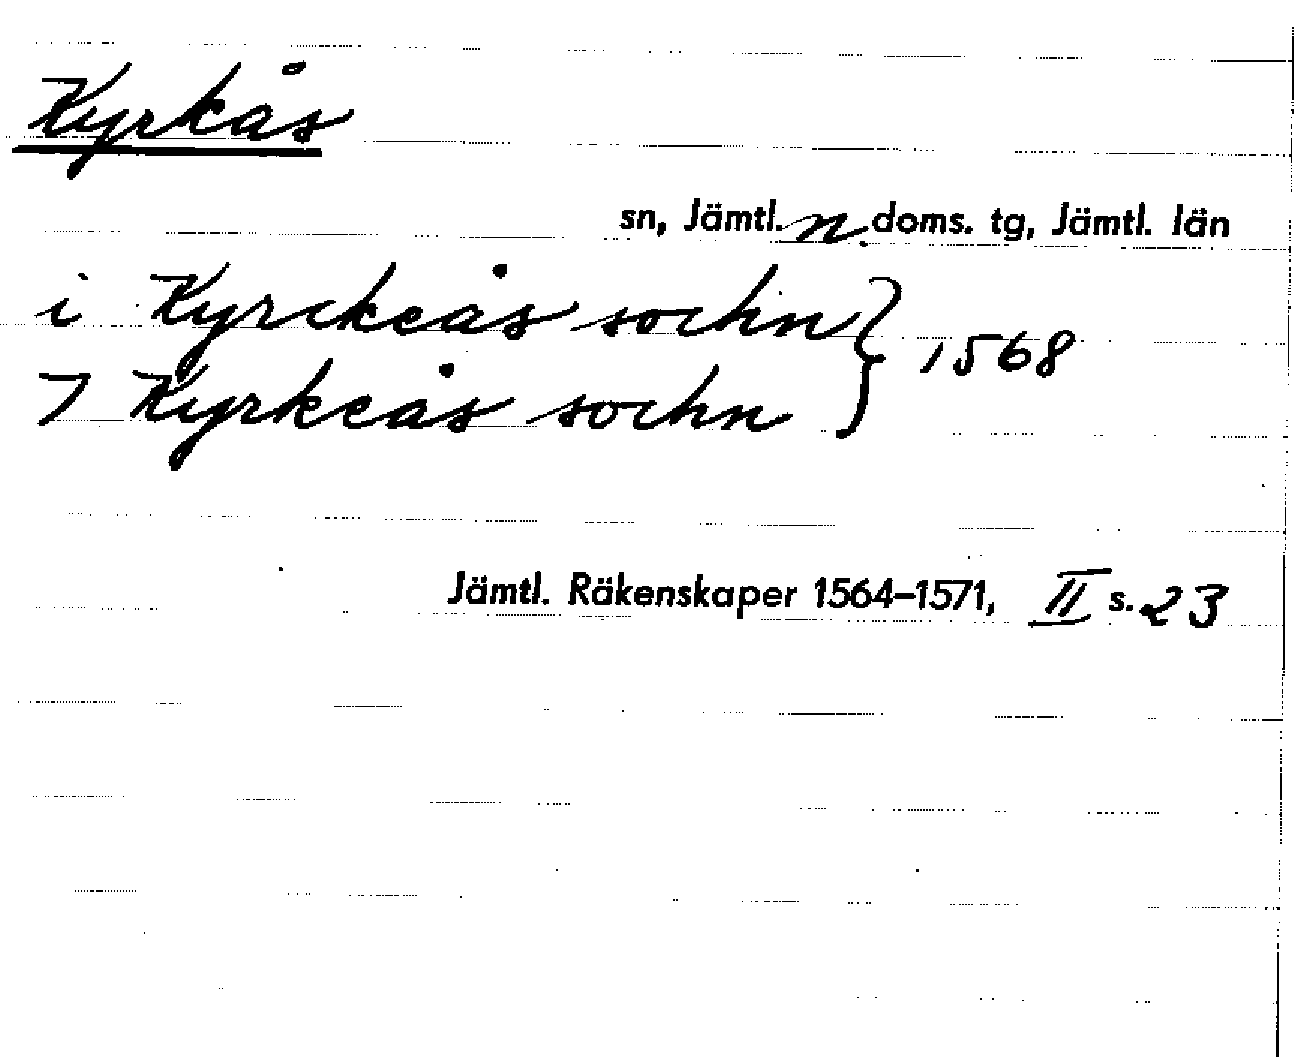 Kyrkås
sn, Jämtl. n. doms. tg, Jämtl. län
i Kyrckeås sochn } 1568
7 Kyrkeås sochn
Jämtl. Räkenskaper 1564–1571, II s. 23